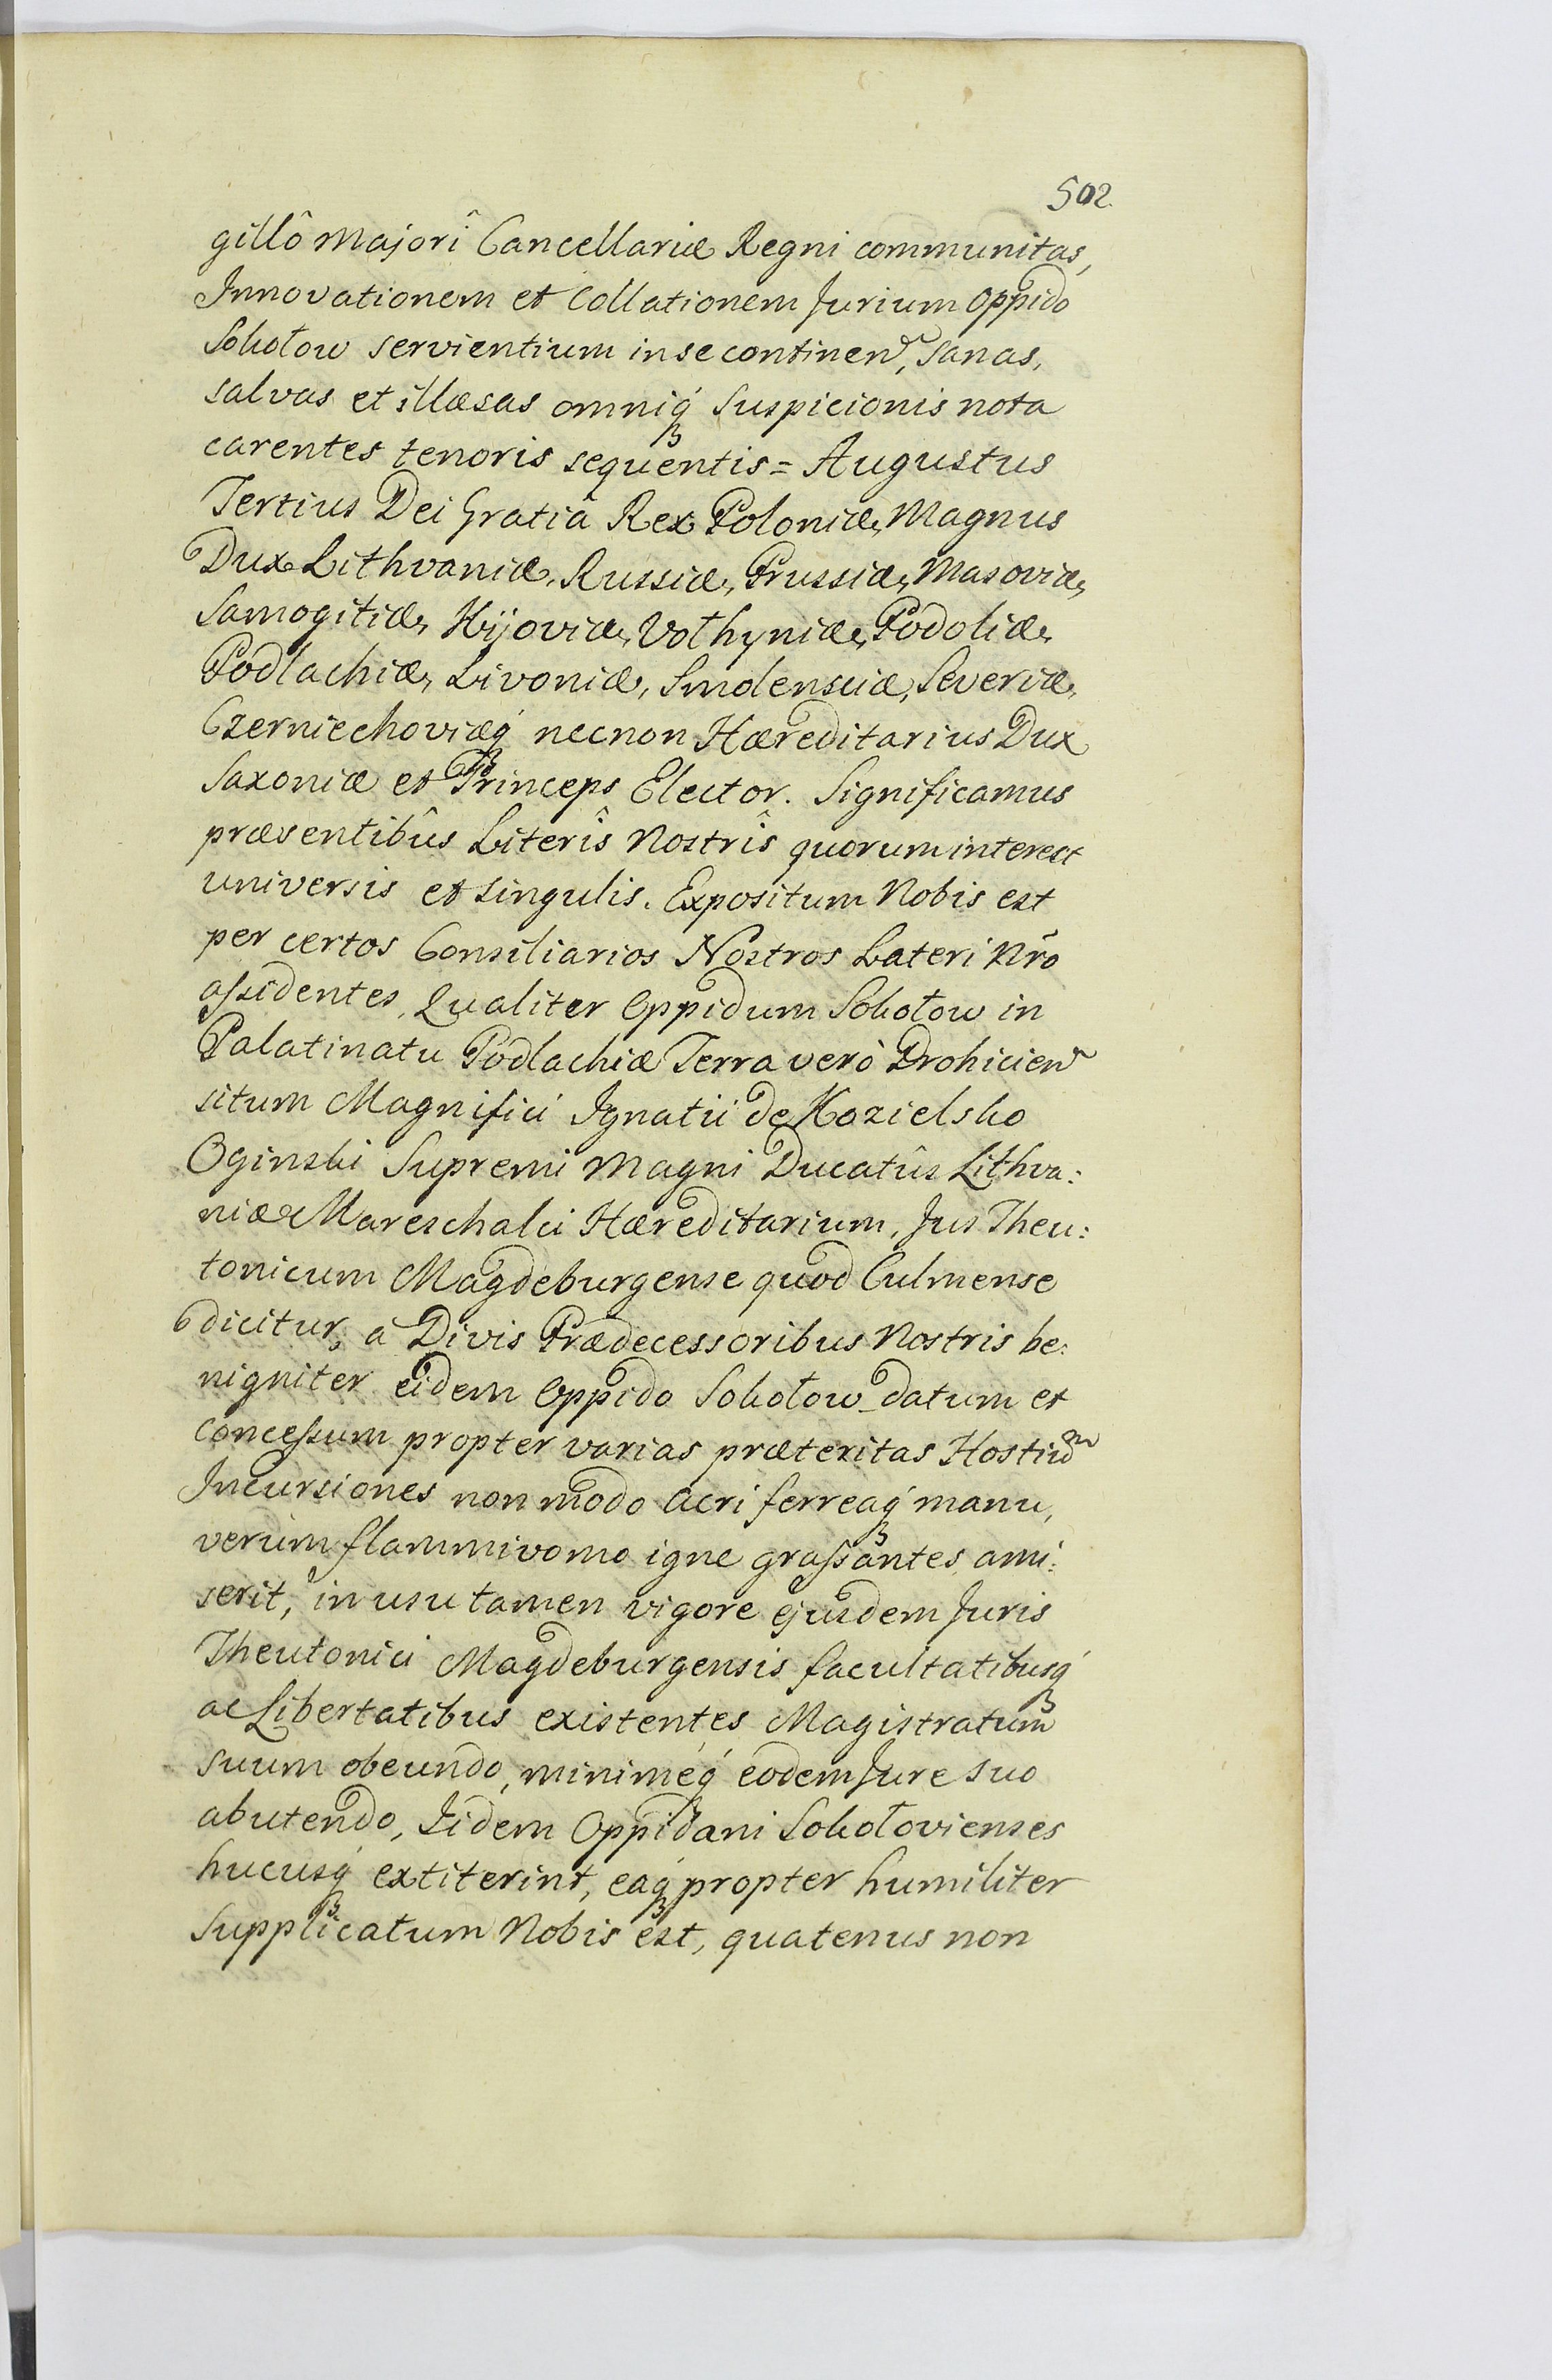 502.
gillô Majorî Cancellariæ Regni communitas,
Innovationem et Collationem Jurium Oppido
Sokołow servientium in se continen, sanas,
salvas et illæsas omniq́ꝫ Suspicionis nota
carentes tenoris sequentis = Augustus
Tertius Dei Gratiâ Rex Poloniæ, Magnus
Dux Lithvaniæ, Russiæ, Prussiæ, Masoviæ,
Samogitiæ, Kijoviæ, Vołhyniæ, Podoliæ,
Podlachiæ, Livoniæ, Smolensciæ, Severiæ,
Czerniechoviæq́ꝫ necnon Hæreditarius Dux
Saxoniæ et Princeps Elector. Significamus
præsentibûs Literîs Nostrîs quorum interest
universis et singulis. Expositum Nobis est
per certos Consiliarios Nostros Lateri Nr̃o
aſsidentes, Qualiter Oppidum Sokołow in
Palatinatu Podlachiæ Terra verò Drohicien
situm Magnifici Ignatii de Kozielsko
Oginski Supremi Magni Ducatûs Lithva:
niæ Mareschalci Hæreditarium, Jus Theu:
tonicum Magdeburgense quod Culmense
dicitur, â Divis Prædecessoribus Nostris be:
nigniter eidem Oppido Sokołow datum et
Conceſsum propter varias præteritas Hostium
Incursiones non modo acri ferreaq́ꝫ manu,
verùm flammivomo igne graſsantes, ami:
serit, in usu tamen vigore ejusdem Juris
Theutonici Magdeburgensis facultatibusq́ꝫ
ac Libertatibus existentes Magistratum
suum obeundo, minimeq́ꝫ eodem Jure suo
abutendo, Iidem Oppidani Sokołovienses
hucusq́ꝫ extiterint, eaq́ꝫ propter humiliter
Supplicatum Nobis est, quatenus non